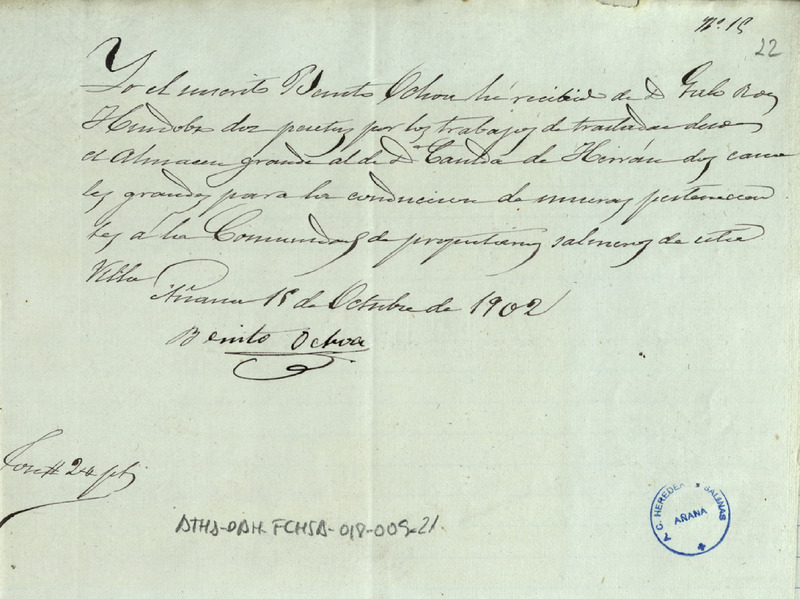 Nº. 15
22
Yo el suscrito Benito Ochoa hé recibido de D Galo
dos pesetas por los trabajos de trasladar desde
el Almacen grande al de Dª Casilda de Herrán dos cana
les grandes para la conducion de mueras pertenecien
tes á la Comunidad de propietarios salineros de esta
Villa
Añana 15 de Octubre de 1902
Benito Ochoa
Son # 2 # pts
ATHA-DAH-FCHSA-018-009-21
A. C. HEREDE SALINAS
AÑANA